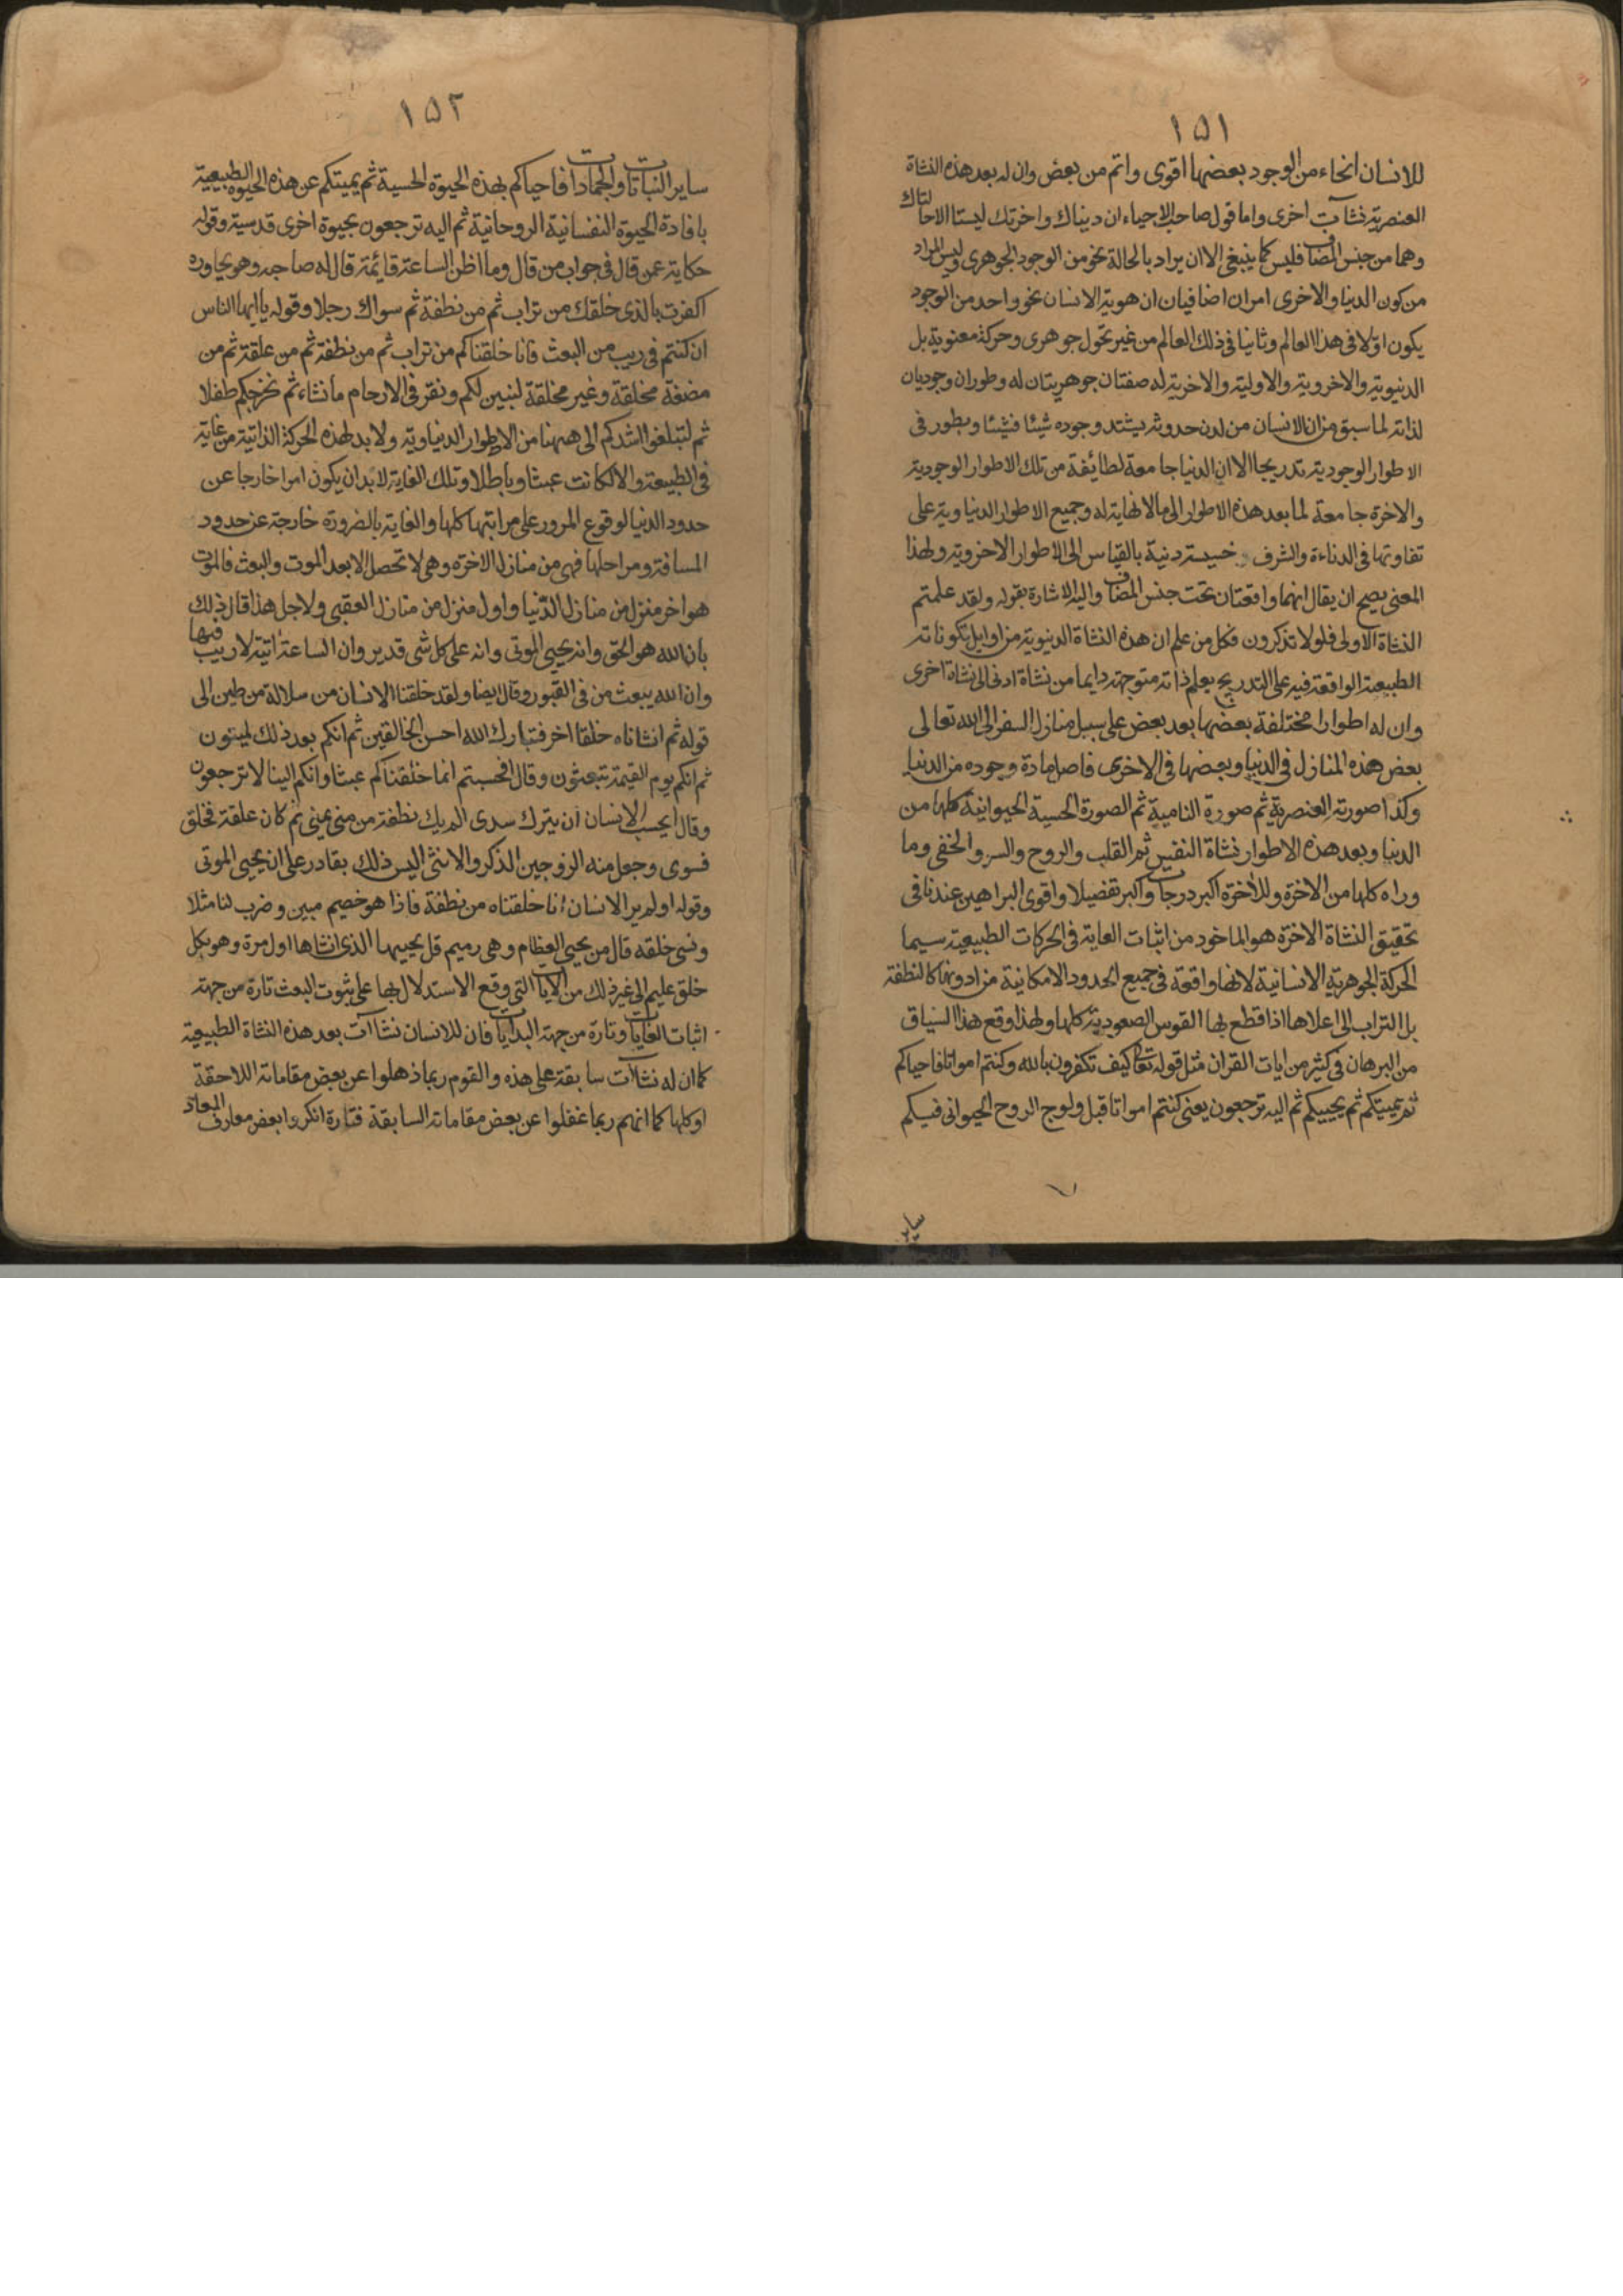 ١٥١
للانسان انحاء من الوجود بعضها اقوى واتم من بعض وان له بعد هذه النشاة
العنصرية نشآت اخرى واما قول صاحب الاحياء ان دنياك واخرتك ليستا الا حالتاك
وهما من جنس المضاف فليس كما ينبغى الا ان يراد بالحالة نحو من الوجود الجوهرى وليس المراد
من كون الدنيا والاخرى امران اضافيان ان هوية الانسان نحو واحد من الوجود
يكون اوّلا فى هذا العالم وثانيا فى ذلك العالم من غير تحول جوهرى وحركة معنوية بل
الدنيوية والاخروية والاولية والاخرية له صفتان جوهريتان له وطوران وجوديان
لذاته لما سبق من ان الانسان من لدن حدوثه يشتد وجوده شيئا فشيئا ويطور فى
الاطوار الوجودية تدريجا الا ان الدنيا جامعة لطائفة من تلك الاطوار الوجودية
والاخرة جامعة لما بعد هذه الاطوار الى ما لا نهاية له وجميع الاطوار الدنياوية على
تفاوتها فى الدناءة والشرف خسيسة دنية بالقياس الى الاطوار الاخروية ولهذا
المعنى يصح ان يقال انهما واقعتان تحت جنس المضاف واليه الاشارة بقوله ولقد علمتم
النشاة الاولى فلولا تذكرون فكل من علم ان هذه النشاة الدنيوية من اوايل تكوناته
الطبيعية الواقعة فيه على التدريج يعلم ذاته متوجهة دايما من نشاة ادنى الى نشاة اخرى
وان له اطوارا مختلفة بعضها بعد بعض على سبيل منازل السفر الى الله تعالى
بعض هذه المنازل فى الدنيا وبعضها فى الاخرى فاصل مادة وجوده من الدنيا
وكذا صورته العنصرية ثم صورة النامية ثم الصورة الحسية الحيوانية كلها من
الدنيا وبعد هذه الاطوار نشاة النفس ثم القلب والروح والسر والخفى وما
وراه كلها من الاخرة وللاخرة اكبر درجات واكبر تفضيلا واقوى البراهين عندنا فى
تحقيق النشاة الاخرة هو الماخود من اثبات الغاية فى الحركات الطبيعية سيما
الحركة الجوهرية الانسانية لانها واقعة فى جميع الحدود الامكانية من ادونها كالنطفة
بل التراب الى اعلاها اذا قطع بها القوس الصعودية كلها ولهذا وقع هذا السياق
من البرهان فى كثير من ايات القران مثل قوله تعالى كيف تكفرون بالله وكنتم امواتا فاحياكم
ثم يميتكم ثم يحييكم ثم اليه ترجعون يعنى كنتم امواتا قبل ولوج الروح الحيوانى فيكم
ساير
١٥٢
ساير النباتات والجمادات فاحياكم بهذه الحيوة الحسية ثم يميتكم عن هذه الحيوة الطبيعية
بافادة الحيوة النفسانية الروحانية ثم اليه ترجعون بحيوة اخرى قدسية وقوله
حكاية عمن قال فى جواب من قال وما اظن الساعة قائمة قال له صاحبه وهو يحاوره
اكفرت بالذى خلقك من تراب ثم من نطفة ثم سواك رجلا وقوله يا ايها الناس
ان كنتم فى ريب من البعث فانا خلقناكم من تراب ثم من نطفة ثم من علقة ثم من
مضغة مخلقة وغير مخلقة لنبين لكم ونقر فى الارحام ما نشاء ثم نخرجكم طفلا
ثم لتبلغوا اشدكم الى ههنا من الاطوار الدنياوية ولا بد لهذه الحركة الذاتية من غاية
فى الطبيعة والا لكانت عبثا وباطلا وتلك الغاية لا بد ان يكون امرا خارجا عن
حدود الدنيا لوقوع المرور على مراتبها كلها والغاية بالضرورة خارجة عن حدود
المسافة ومراحلها فهى من منازل الاخرة وهى لا تحصل الا بعد الموت والبعث فالموت
هو اخر منزل من منازل الدّنيا واول منزل من منازل العقبى ولاجل هذا قال ذلك
بان الله هو الحق وانه يحيى الموتى وانه على كل شى قدير وان الساعة اتية لا ريب فيها
وان الله يبعث من فى القبور وقال ايضا ولقد خلقنا الانسان من سلالة من طين الى
قوله ثم انشاناه خلقا اخر فتبارك الله احسن الخالقين ثم انكم بعد ذلك لميتون
ثم انكم يوم القيمة تبعثون وقال افحسبتم انما خلقناكم عبثا وانكم الينا لا ترجعون
وقال ايحسب الانسان ان يترك سدى الم يك نطفة من منى يمنى ثم كان علقة فخلق
فسوى وجعل منه الزوجين الذكر والانثى اليس ذلك بقادر على ان يحيى الموتى
وقوله اولم ير الانسان انا خلقناه من نطفة فاذا هو خصيم مبين وضرب لنا مثلا
ونسى خلقه قال من يحيى العظام وهى رميم قل يحييها الذى انشاها اول مرة وهو بكل
خلق عليم الى غير ذلك من الآيات التى وقع الاستدلال بها على ثبوت البعث تارة من جهة
اثبات الغايات وتارة من جهة البدايات فان للانسان نشاآت بعد هذه النشاة الطبيعية
كما ان له نشآت سابقة على هذه والقوم ربما ذهلوا عن بعض مقاماته اللاحقة
او كلها كما انهم ربما غفلوا عن بعض مقاماته السابقة فتارة انكروا بعض معارف المعاد